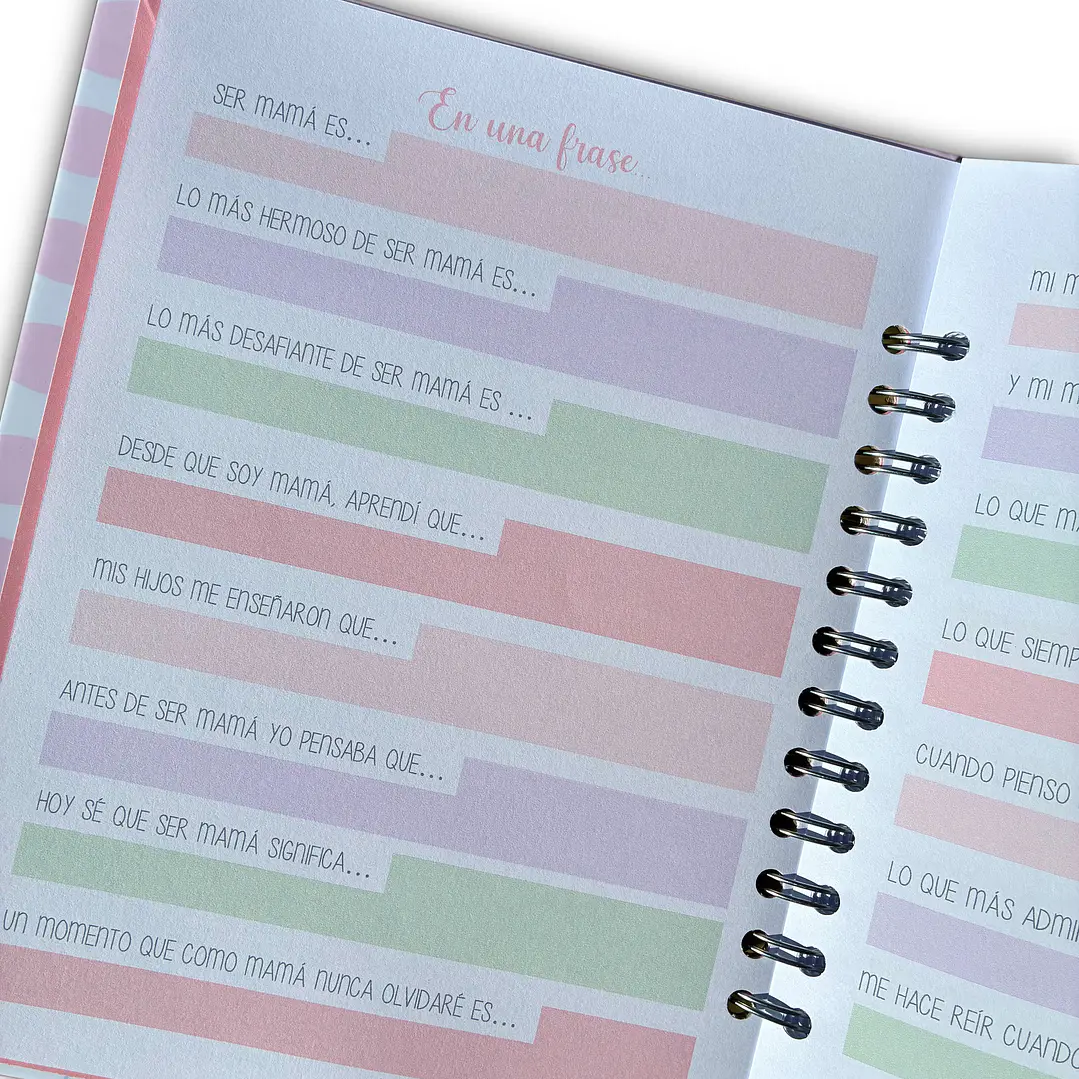 En una frase...
SER MAMÁ ES...
LO MÁS HERMOSO DE SER MAMÁ ES...
LO MÁS DESAFIANTE DE SER MAMÁ ES ...
DESDE QUE SOY MAMÁ, APRENDÍ QUE...
MIS HIJOS ME ENSEÑARON QUE...
ANTES DE SER MAMÁ YO PENSABA QUE...
HOY SÉ QUE SER MAMÁ SIGNIFICA...
UN MOMENTO QUE COMO MAMÁ NUNCA OLVIDARÉ ES...
MI
Y MI
LO QUE
LO QUE
CUANDO PIENSO
LO QUE MÁS
ME HACE REÍR CUANDO